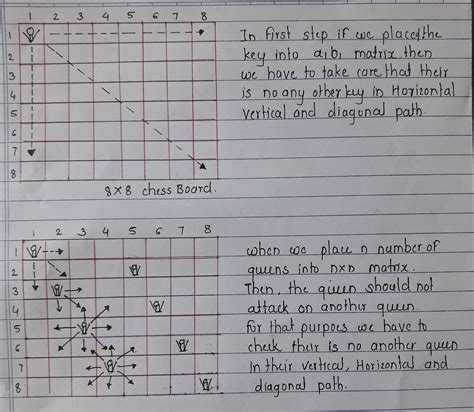 1 2 3 4 5 6 7 8
1
2
3
4
5
6
7
8
8×8 chess Board.
In first step if we placed the
key into a,b, matrix then
we have to take care that their
is no any other key in Horizontal
vertical and diagonal path.
1 2 3 4 5 6 7 8
1
2
3
4
5
6
7
8
when we place n number of
queens into n×n matrix.
Then, the queen should not
attack on another queen.
for that purpoes we have to
check their is no another queen
in their vertical, Horizontal and
diagonal path.